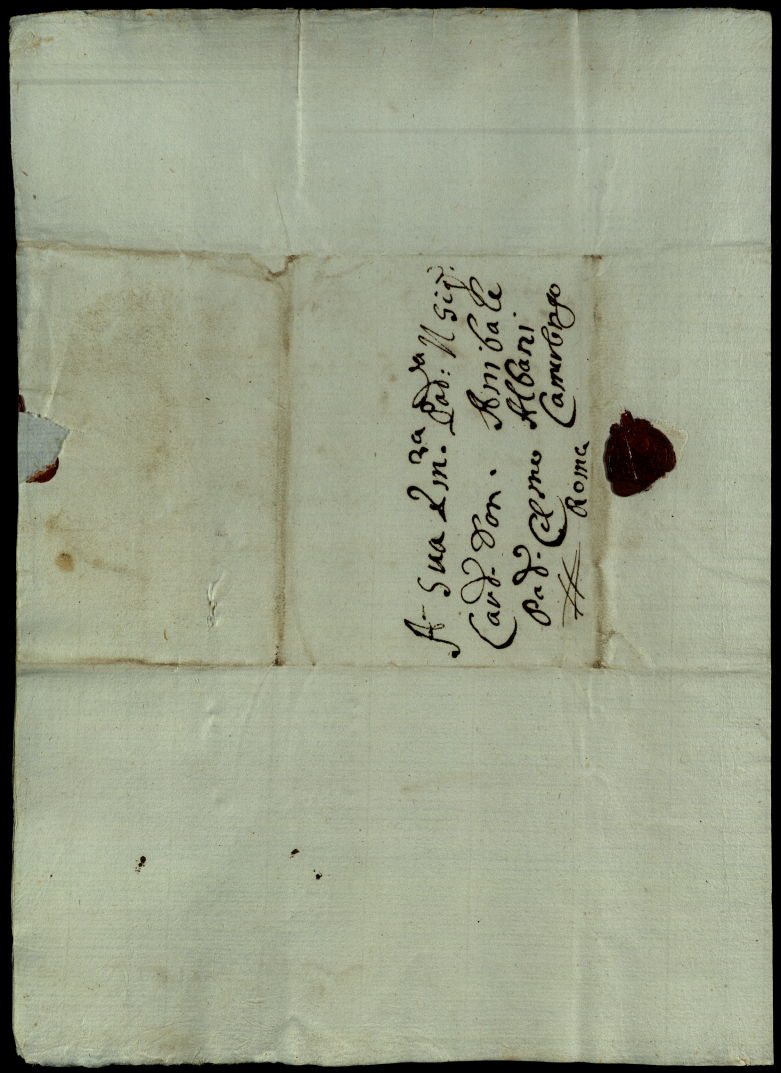 A Sua Em.za Pad: Il Sig.r
Card. Don. Anibale
Pad. Col.mo Albani
Roma Camerlengo